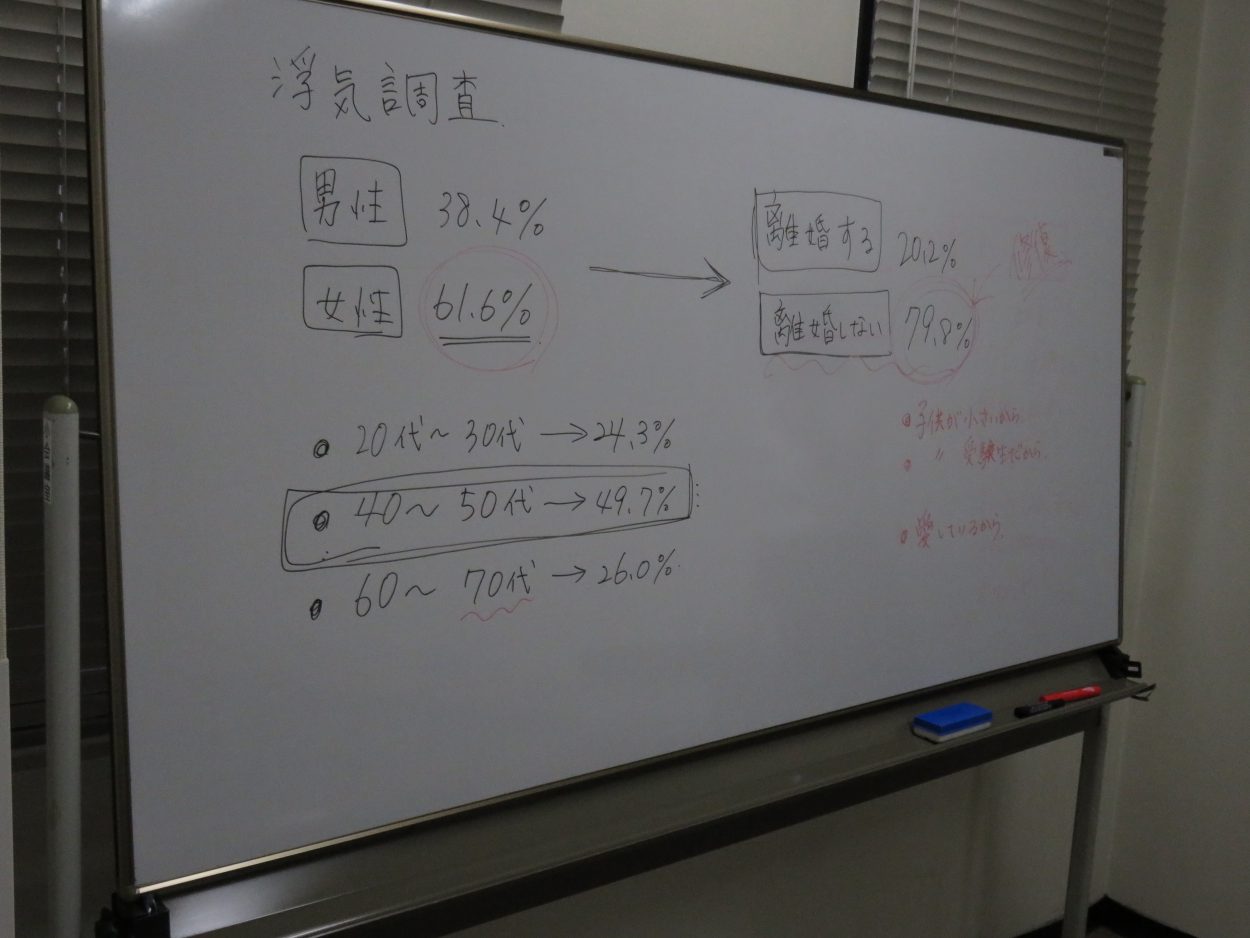 浮気調査
男性 38.4%
女性 61.6%
離婚する 20.2%
離婚しない 79.8%
修復
• 20代〜30代→24.3%
• 40〜50代→49.7%
• 60〜70代→26.0%
• 子供が小さいから
• 〃 受験生だから
• 愛しているから